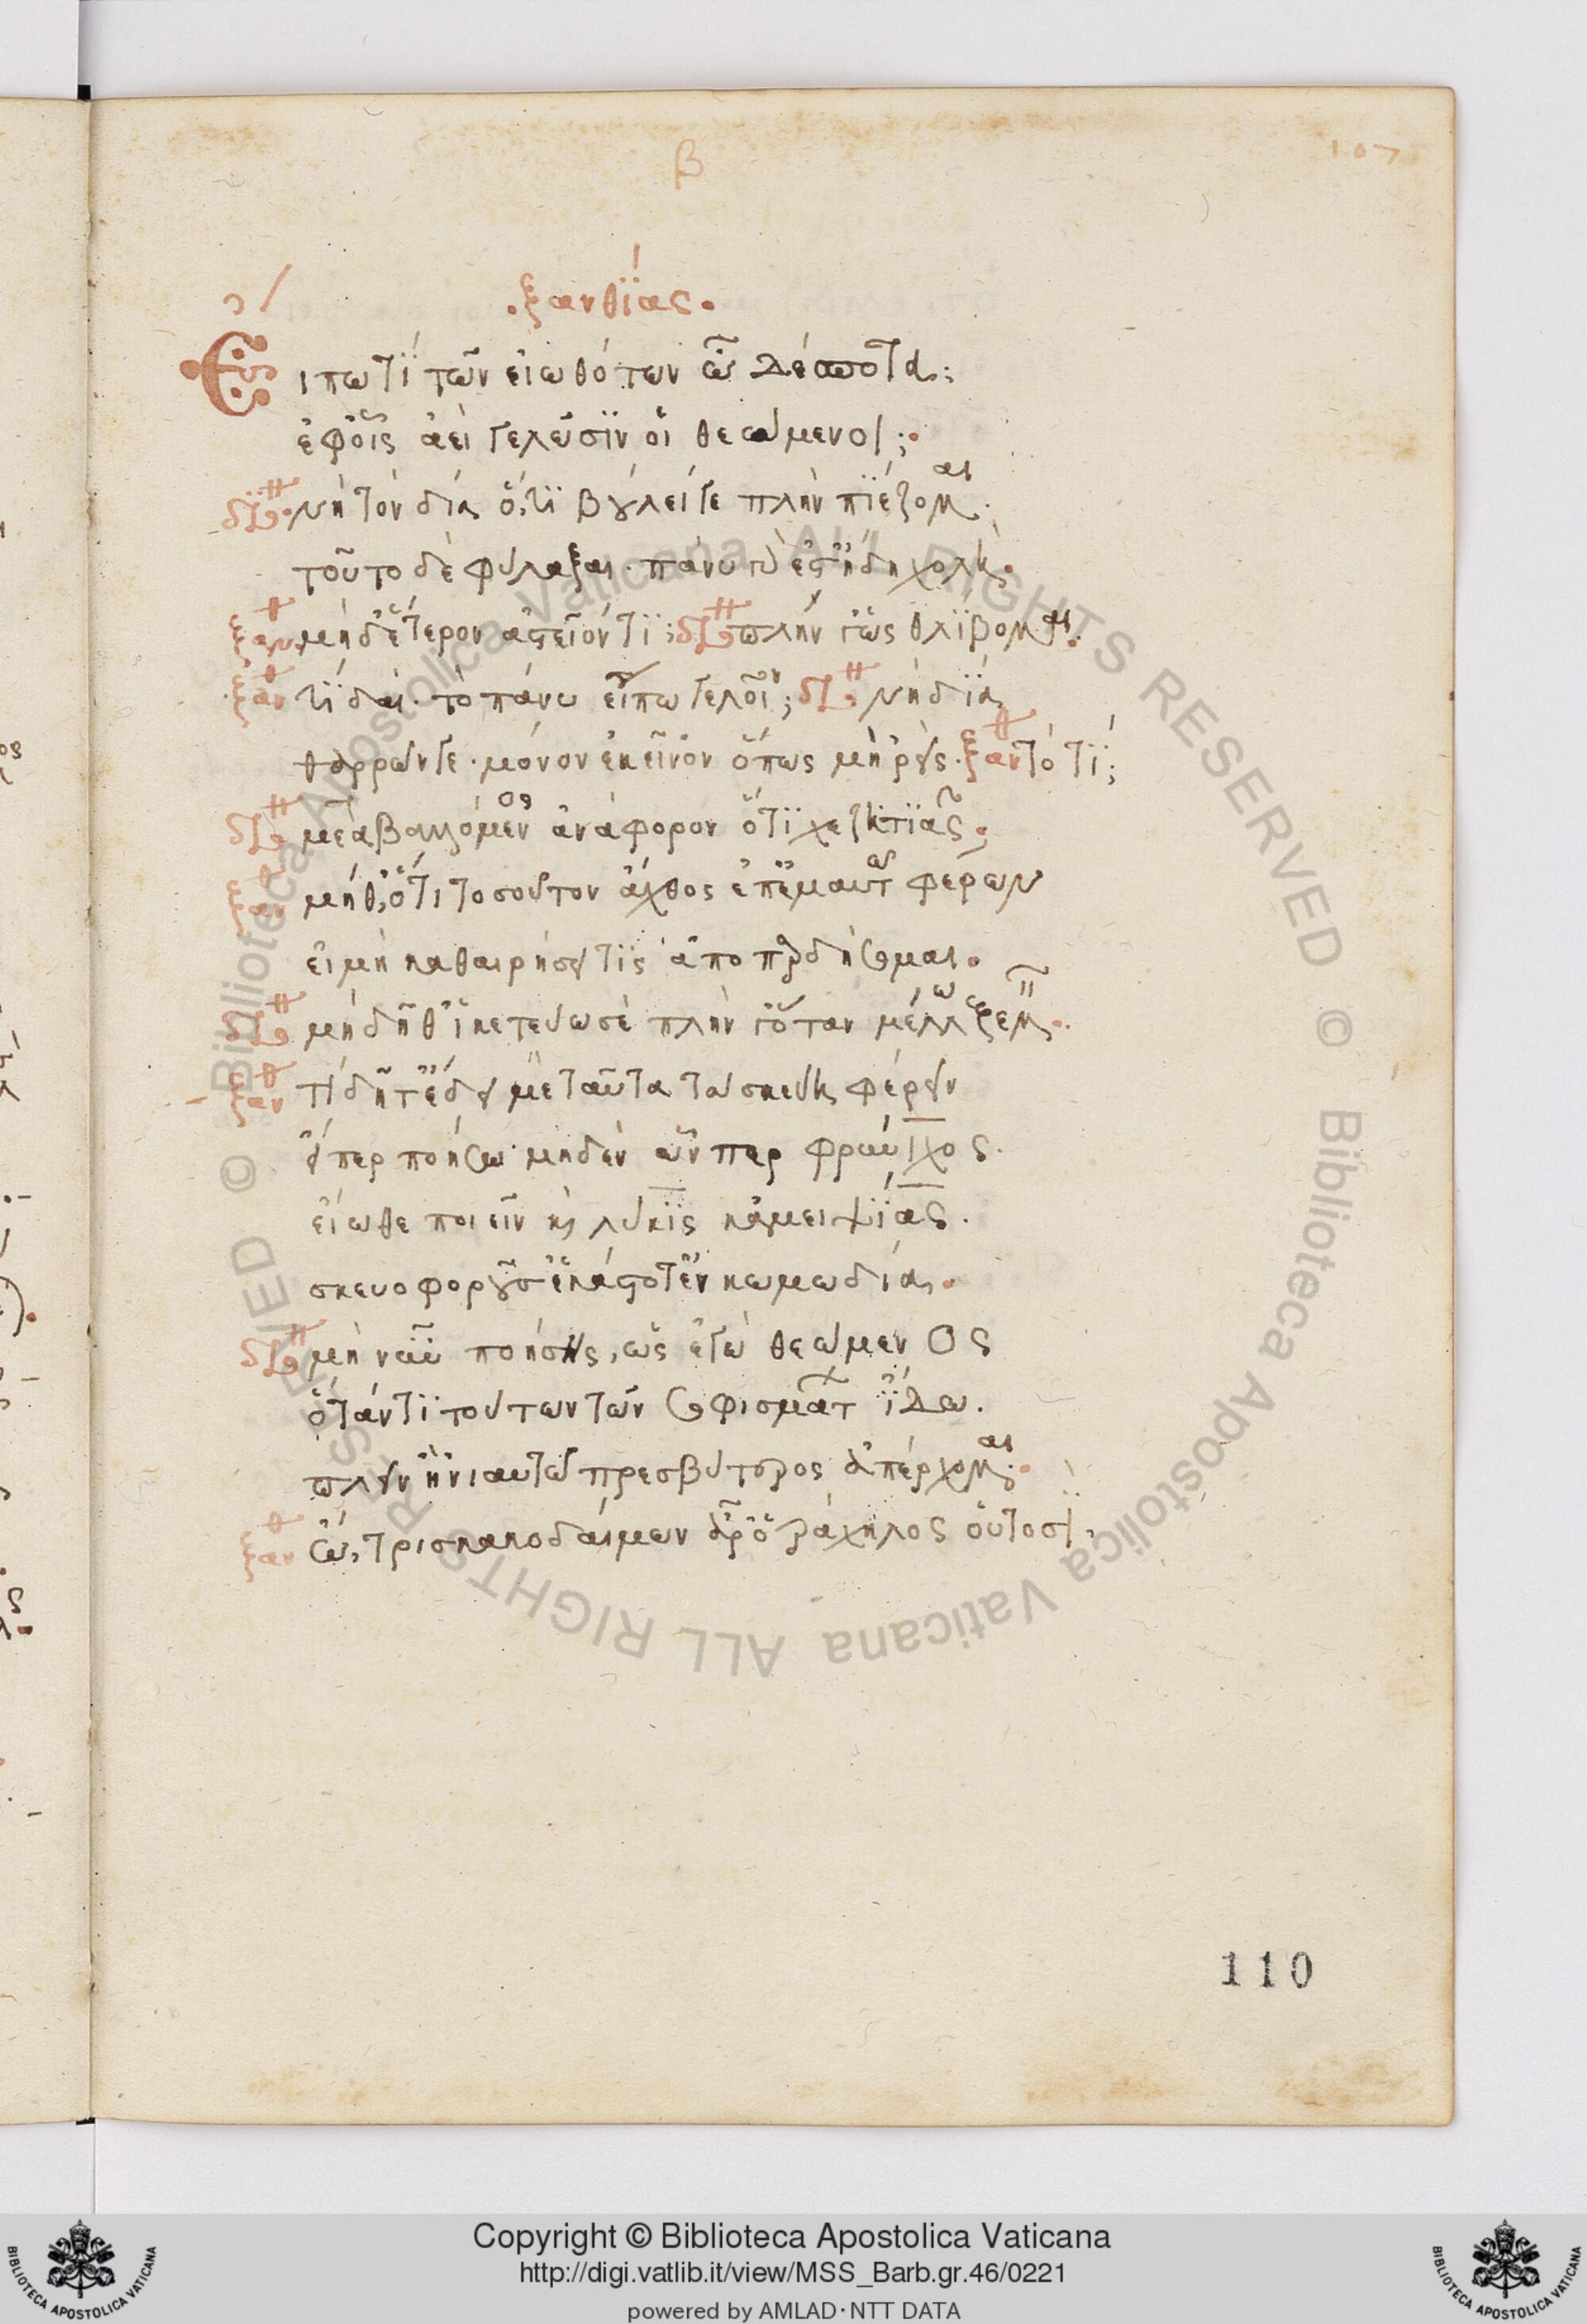 β
107
·ξανθΐας·
Εἴπω τί τῶν εἰωθότων ὦ δέσποτα;
ἐφ' οἷς ἀεὶ γελῶσϊν οἱ θεώμενοι;
δϊο. νὴ τὸν δία ὅ,τϊ βούλει γε πλὴν πϊέζομαι.
τοῦτο δὲ φύλαξαι. πάνυ γάρ ἐστ' ἤδη χολή.
ξαν. μηδ' ἕτερον ἀστεῖόν τϊ; διο. πλήν γ' ὡς θλίβομαι.
ξαν τί δαί. τὸ πάνυ εἴπω γελοῖον; διο νὴ δΐα
θαρρῶν γε. μόνον ἐκεῖνον ὅπως μὴ ρεῖς. ξαν τὸ τί;
διο μεταβαλλόμενος ἀνάφορον ὅτι χεζητιᾶς.
ξαν μήθ' ὅτι τοσοῦτον ἄχθος ἐπ' ἐμαυτὸν φέρων
εἰ μὴ καθαιρήσει τὶς ἀποπαρδήσομαι.
διο μὴ δῆθ' ἱκετεύω σὲ πλήν γ' ὅταν μέλλω ξεμεῖν.
ξαν τί δῆτ' ἔδει με ταῦτα τὰ σκεύη φέρειν
εἴπερ ποήσω μηδὲν ὧνπερ φρύνιχος
εἴωθε ποιεῖν καὶ λύκις κἀμειψίας.
σκευοφοροῦσ' ἑκάστοτ' ἐν κωμωδία.
διο μὴ νῦν ποήσης, ὡς ἐγὼ θεώμενος
ὅταν τὶ τούτων τῶν σοφισμάτων ἴδω.
πλεῖν ἢ 'νιαυτῶ πρεσβύτερος ἀπέρχομαι.
ξαν ὦ, τρισκακοδαίμων ἄρ' ὁ τράχηλος οὑτοσί,
110
© Biblioteca Apostolica Vaticana ALL RIGHTS RESERVED © Biblioteca Apostolica Vaticana ALL RIGHTS RESERVED
Copyright © Biblioteca Apostolica Vaticana
http://digi.vatlib.it/view/MSS_Barb.gr.46/0221
powered by AMLAD·NTT DATA
BIBLIOTECA APOSTOLICA VATICANA
BIBLIOTECA APOSTOLICA VATICANA